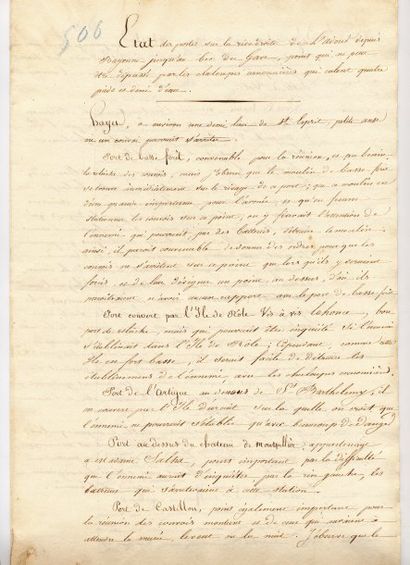 506
Etat des ports sur la rive droite de l'adour depuis
Bayonne jusqu'au bec du Gave, point qui ne peut
être dépassé par les chaloupes canonnières qui calent quatre
pieds et demi d'eau.
hayet, a environ une demi lieue de St Esprit, petite anse
ou un convoi pourrait s'arrêter
Port de basse fort, convenable pour la réunion, et au besoin
relâche des convois, mais j'observe que le moulin de basse fort
se trouve immédiatement sur le rivage de ce port; que ce moulin est
d'une grande importance pour l'armée, et qu'en faisant
stationner les convois sur ce point, on y fixerait l'attention de
l'ennemi qui pourrait, par des batteries, détruire le moulin
ainsi, il paroit convenable de donner des ordres pour que les
convois ne s'arrêtent sur ce point que lorsqu'ils y seraient
forcés, et de leur désigner un point, au dessus, d'où ils
n'avoir aucun rapport avec le port de basse fort
Port couvert par l'Ile de Role vis à vis lahonce, bon
port de relâche, mais qui pourrait être inquiété si l'ennemi
s'établissait dans l'Ile de Role; Cependant, comme cette
Ile est fort basse, il serait facile de détruire les
établissemens de l'ennemi avec les chaloupes canonnières.
Port de l'Artigue au dessous de St Barthelemy, il
est couvert par l'Ile sur la quelle on croit que
l'ennemi ne pourrait s'établir qu'avec beaucoup de danger
Port au dessus du chateau de montpellier, appartenant
a madame Saltha, point important par la difficulté
que l'ennemi aurait d'inquiéter par la rive gauche, les
bateaux qui s'arrêteraient à cette station.
Port de Castillon, point également important pour
la réunion des convois montant et de ceux qui auraient à
attendre la marée, le vent ou la nuit. J'observe que le